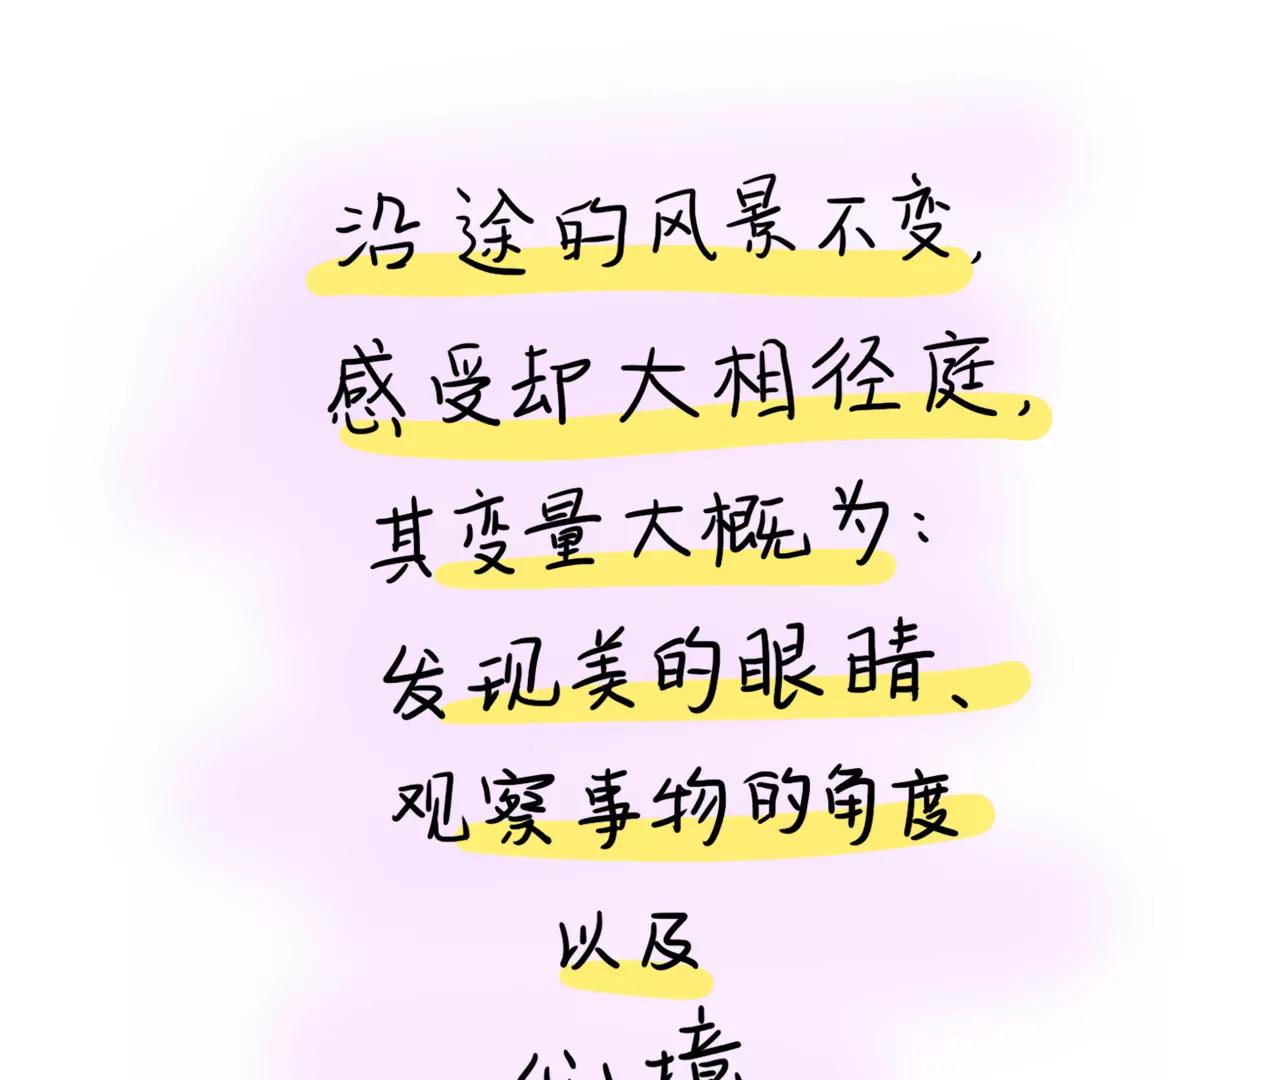 沿途的风景不变,
感受却大相径庭,
其变量大概为:
发现美的眼睛、
观察事物的角度
以及
心境